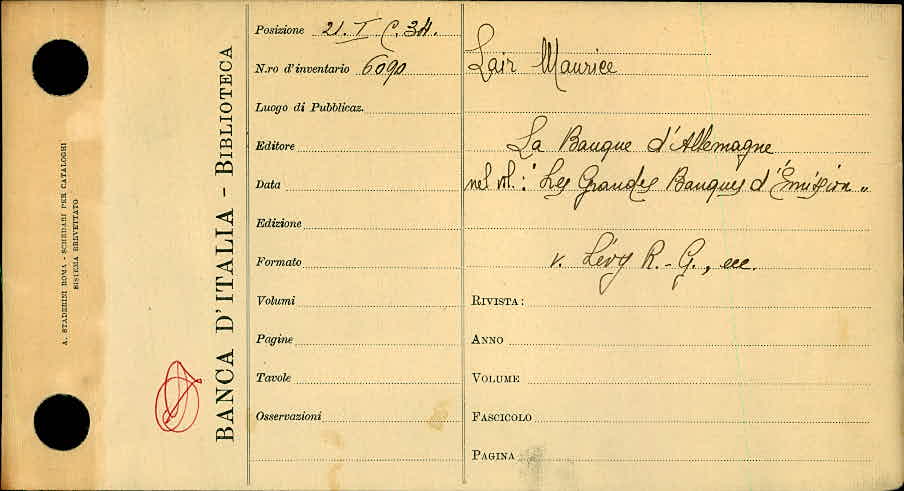 A. STADERINI ROMA - SCHEDARI PER CATALOGHI
SISTEMA BREVETTATO
BANCA D'ITALIA - BIBLIOTECA
Posizione 21. I C. 34.
N.ro d'inventario 6090
Luogo di Pubblicaz.
Editore
Data
Edizione
Formato
Volumi
Pagine
Tavole
Osservazioni
Lair Maurice
La Banque d'Allemagne
nel vol.: "Les Grandes Banques d'Émission„
v. Lévy R.-G., ecc.
RIVISTA:
ANNO
VOLUME
FASCICOLO
PAGINA